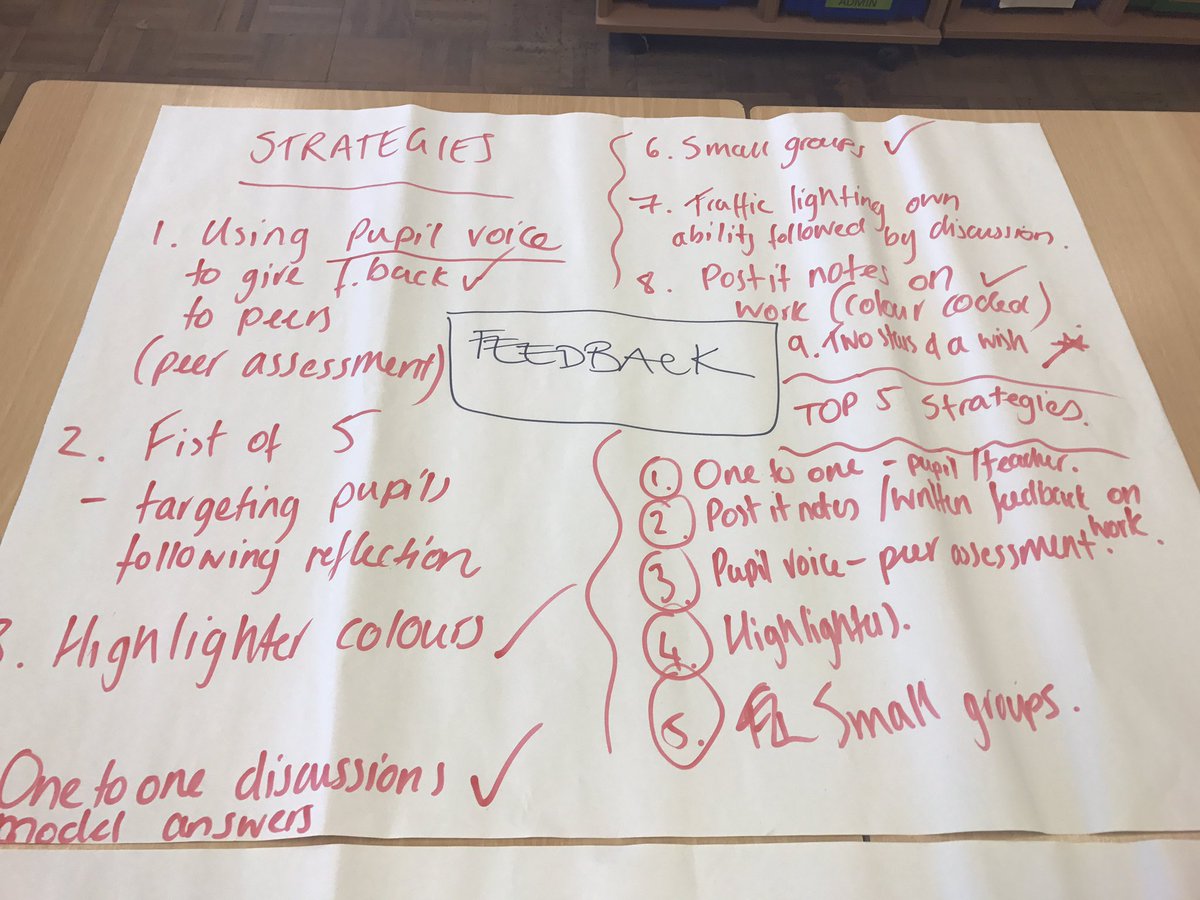 ADMIN
STRATEGIES
1. Using pupil voice
to give f.back ✓
to peers
(peer assessment)
2. Fist of 5
- targeting pupils
following reflection
3. Highlighter colours ✓
One to one discussions ✓
model answers
FEEDBACK
6. Small groups ✓
7. Traffic lighting own
ability followed by discussion.
8. Post it notes on ✓
work (colour coded)
9. Two stars & a wish
TOP 5 Strategies.
1. One to one - pupil/teacher.
2. Post it notes /written feedback on
work.
3. Pupil voice - peer assessment.
4. Highlighters.
5. Small groups.